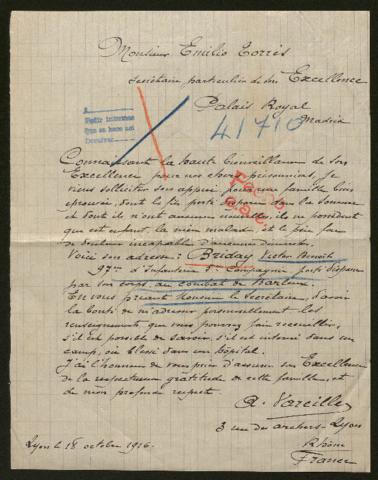 Monsieur Emilio Torrès
Secrétaire particulier de Son Excellence
Palais Royal
Madrid
41710
Connaissant la haute bienveillance de Son
Excellence pour nos chers prisonniers, je
viens solliciter son appui pour une famille très
éprouvée, dont le fils porté disparu dans la Somme
et dont ils n'ont aucune nouvelle, ils ne possèdent
que cet enfant, la mère malade et le père
de incapable d'aucune démarche.
Voici son adresse: Briday Victor Benoît
97me d'Infanterie 5e Compagnie porté disparu
par son corps au combat de Barleux.
En vous priant Monsieur le Secrétaire, d'avoir
la bonté de m'adresser personnellement les
renseignements que vous pourrez faire recueillir,
s'il est possible de savoir s'il est interné dans un
camp, ou blessé dans un hôpital.
J'ai l'honneur de vous prier d'assurer son Excellence
de la respectueuse gratitude de cette famille, et
de mon profond respect.
A. Vareille
3 rue des archers - Lyon
Rhône
France
Lyon le 18 octobre 1916.